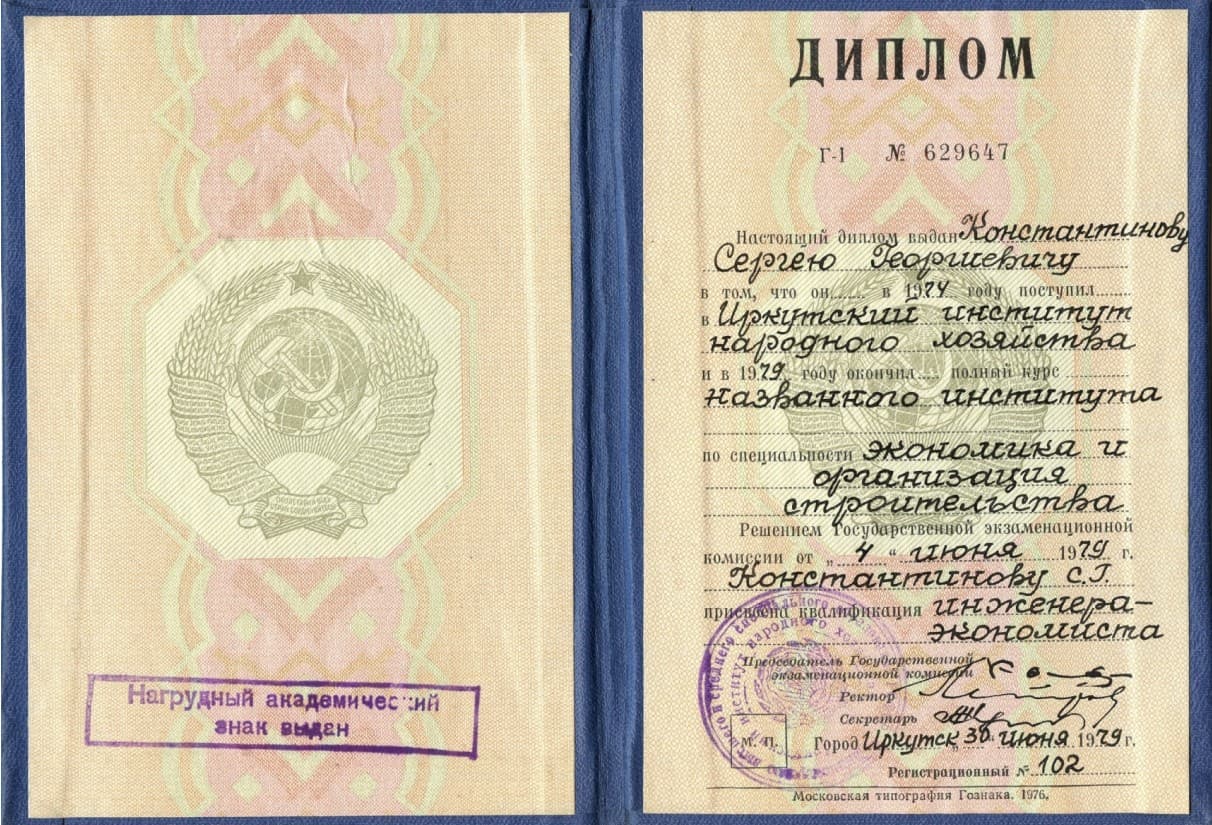 Нагрудный академический
знак выдан
ДИПЛОМ
Г-I № 629647
Настоящий диплом выдан Константинову
Сергею Георгиевичу
в том, что он в 1974 году поступил
в Иркутский институт
народного хозяйства
и в 1979 году окончил полный курс
названного института
по специальности экономика и
организация
строительства
Решением Государственной экзаменационной
комиссии от „ 4 “ июня 1979 г.
Константинову С.Г.
присвоена квалификация инженера-
экономиста
Председатель Государственной
экзаменационной комиссии
Ректор
Секретарь
М. П.
Город Иркутск „ 30 июня 1979 г.
Регистрационный № 102
Московская типография Гознака. 1976.